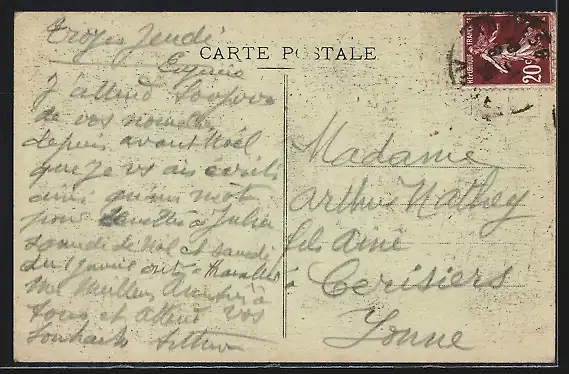 Troyes Jeudi
CARTE POSTALE
J'attend toujours
de vos nouvelles
depuis avant Noël
que je vs ais écrit
ainsi qu'un mot
pour à Julia
samedi de Noël et samedi
du 1 janvier
Mes Meilleurs à
tous et attend vos
souhaits
Madame
Arthur Mathey
fils Ainé
à Cerisiers
Yonne
RÉPUBLIQUE FRANÇAISE
20c